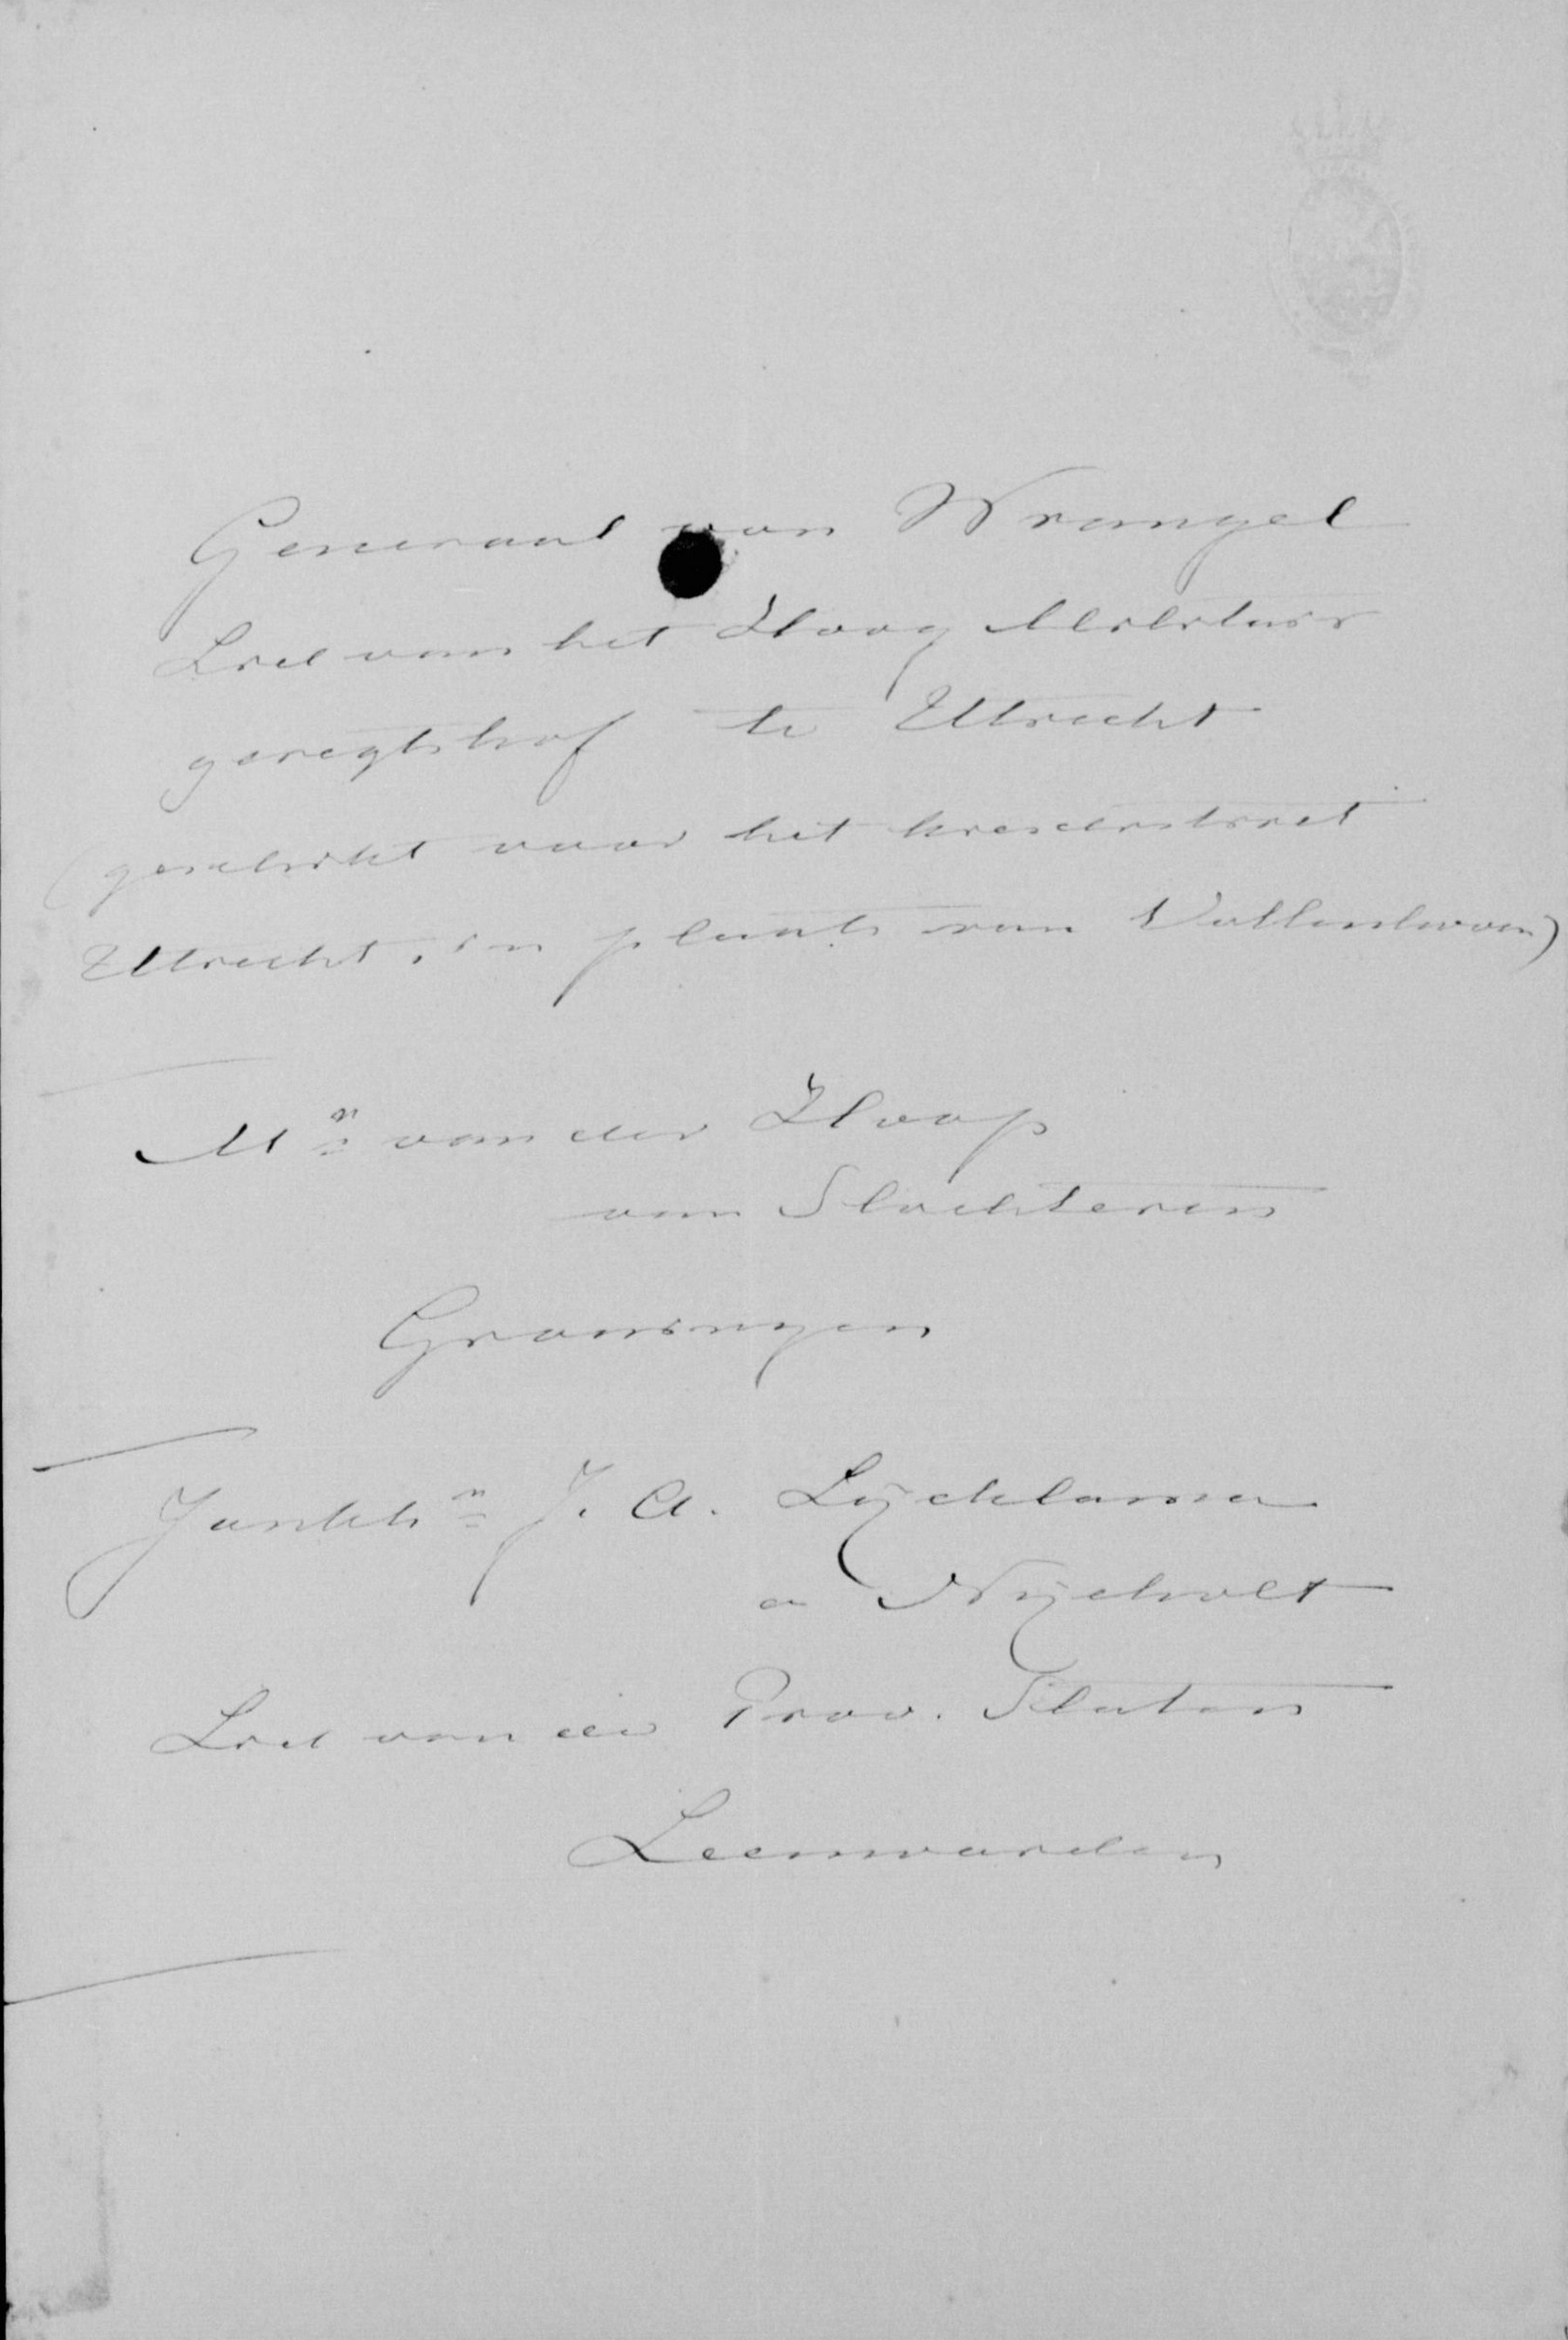 Generaal van Wrangel
Lid van het Hoog Militair
geregtshof te Utrecht
(geschikt voor het kiesdistrict
Utrecht, in plaats van Vollenhoven)
Mr van der Hoop
van Slochteren
Groningen
Jonkhr J. A. Lycklama
a Nijeholt
Lid van de Prov. Staten
Leeuwarden